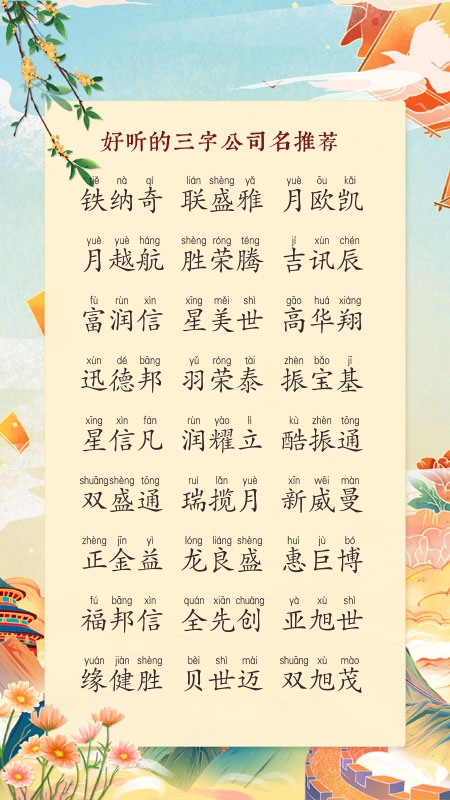 好听的三字公司名推荐
tiě nà qí lián shèng yǎ yuè ōu kǎi
铁纳奇 联盛雅 月欧凯
yuè yuè háng shèng róng téng jí xùn chén
月越航 胜荣腾 吉讯辰
fù rùn xìn xīng měi shì gāo huá xiáng
富润信 星美世 高华翔
xùn dé bāng yǔ róng tài zhèn bǎo jī
迅德邦 羽荣泰 振宝基
xīng xìn fán rùn yào lì kù zhèn tōng
星信凡 润耀立 酷振通
shuāng shèng tōng ruì lǎn yuè xīn wēi màn
双盛通 瑞揽月 新威曼
zhèng jīn yì lóng liáng shèng huì jù bó
正金益 龙良盛 惠巨博
fú bāng xìn quán xiān chuàng yà xù shì
福邦信 全先创 亚旭世
yuán jiàn shèng bèi shì mài shuāng xù mào
缘健胜 贝世迈 双旭茂